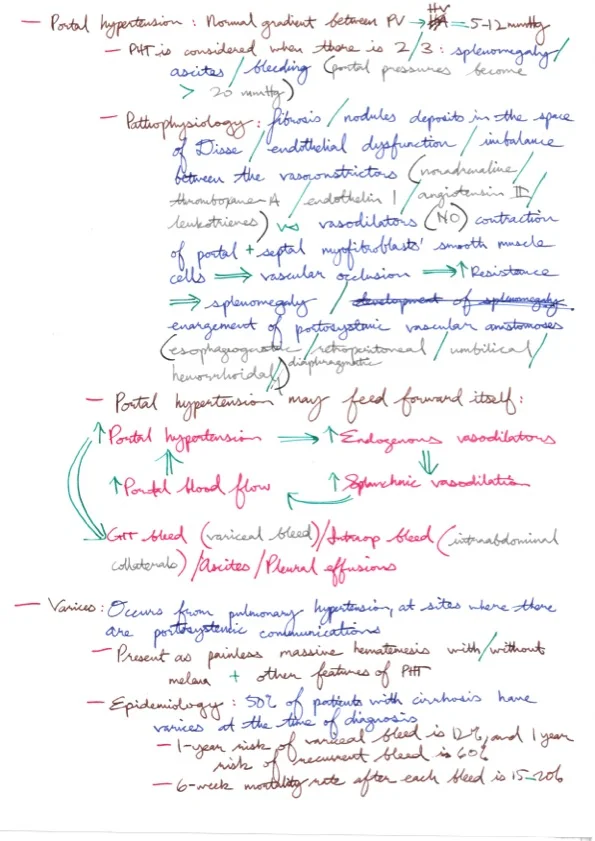 — Portal hypertension : Normal gradient between PV → HV = 5-12 mmHg
— PHT is considered when there is 2/3 : splenomegaly /
ascites / bleeding (portal pressures become
> 20 mmHg)
— Pathophysiology : fibrosis / nodules deposits in the space
of Disse / endothelial dysfunction / imbalance
between the vasoconstrictors (noradrenaline /
thromboxane A / endothelin 1 / angiotensin II /
leukotrienes) vs vasodilators (NO) contraction
of portal + septal myofibroblasts' smooth muscle
cells ⇒ vascular occlusion ⇒ ↑ Resistance
⇒ splenomegaly / development of splenomegaly
enargement of portosystemic vascular anistomoses
(esophagogastric / retroperitoneal / umbilical /
hemorrhoidal / diaphragmatic)
— Portal hypertension may feed forward itself :
↑ Portal hypertension → ↑ Endogenous vasodilators
↑ Portal blood flow ↑ Splanchnic vasodilation
GIT bleed (variceal bleed) / Intraop bleed (intraabdominal
collaterals) / Ascites / Pleural effusions
— Varices : Occurs from pulmonary hypertension, at sites where there
are portosystemic communications
— Present as painless massive hematemesis with/without
melena + other features of PHT
— Epidemiology : 50% of patients with cirrhosis have
varices at the time of diagnosis
— 1-year risk of variceal bleed is 12%, and 1 year
risk of recurrent bleed is 60%
— 6-week mortality rate after each bleed is 15-20%